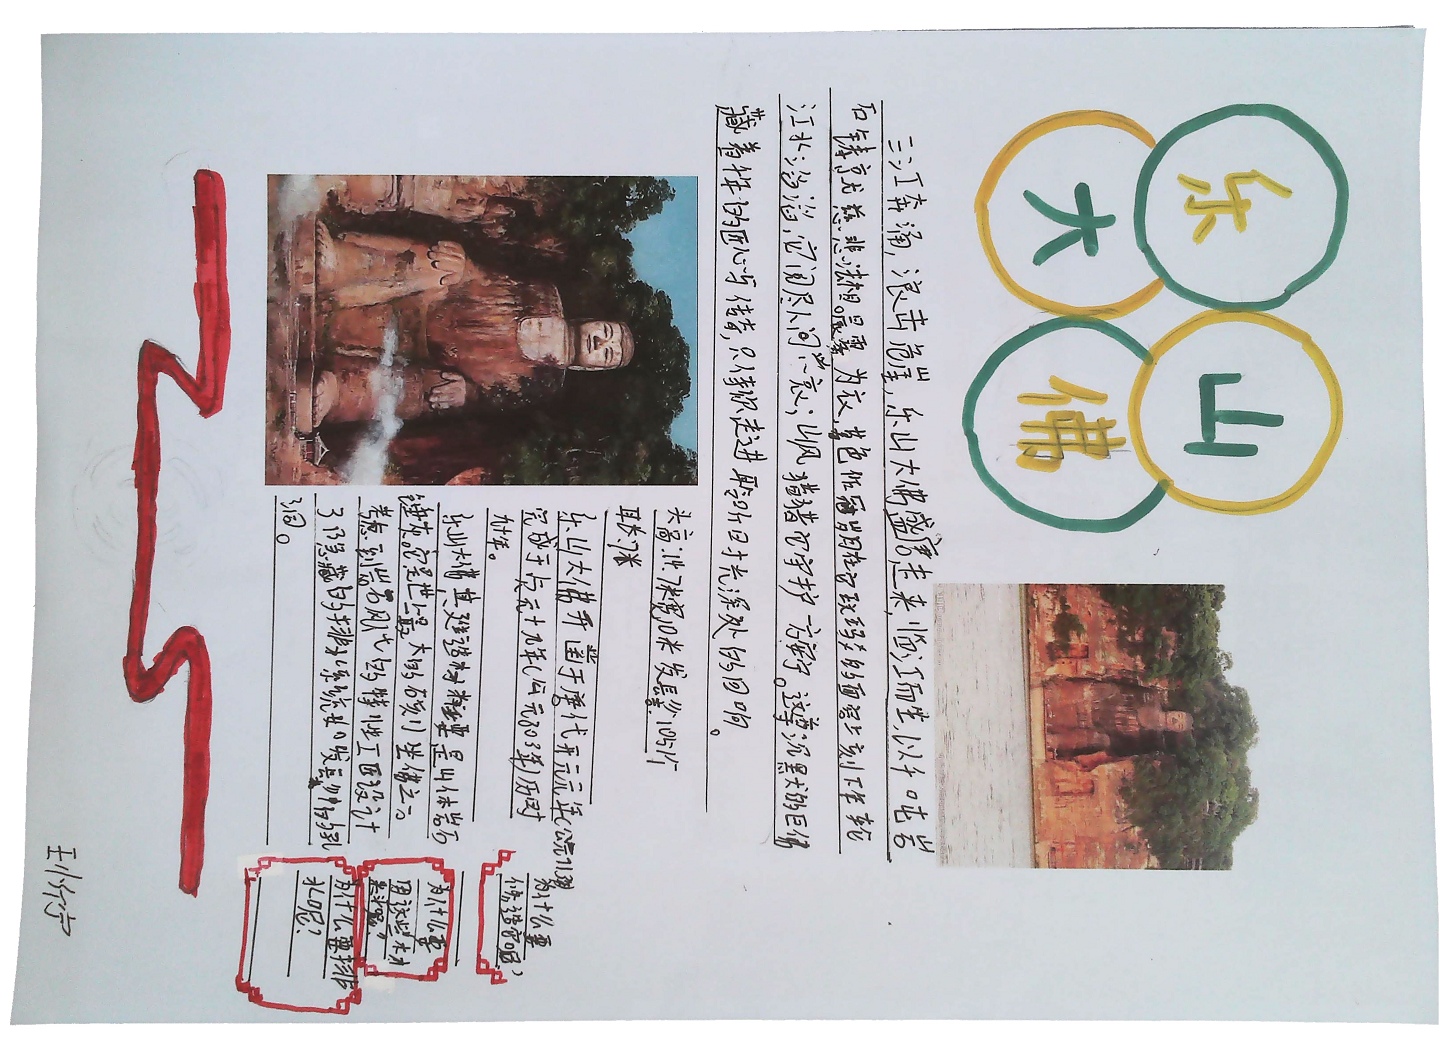 乐山
大佛
三江奔涌,浪击危崖,乐山大佛盛唐走来,临江而坐,以千吨岩
石铸就慈悲法相。晨雾为衣,暮色作冠岁月在它斑驳的面容上刻下年轮
江水滔滔,它阅尽人间兴衰;山风猎猎它守护一方安宁。这尊沉默的巨佛
藏着千年的匠心与传奇,只待你走进聆听时光深处的回响。
头高:14.7米宽10米 发髻:1051个
耳长:7米
乐山大佛开凿于唐代开元元年(公元713
完成于贞元十九年(公元803年)历时
九十年。
乐山大佛其建造材料主要是山体岩石
锤灰。它是世上最大的石刻坐佛之一
考虑到岩石风化的特性工匠设计
了隐藏的排水系统如发髻中的孔
洞。
为什么要
修造它呢?
为什么要
用这些材
来呢?
为什么要排
水呢?